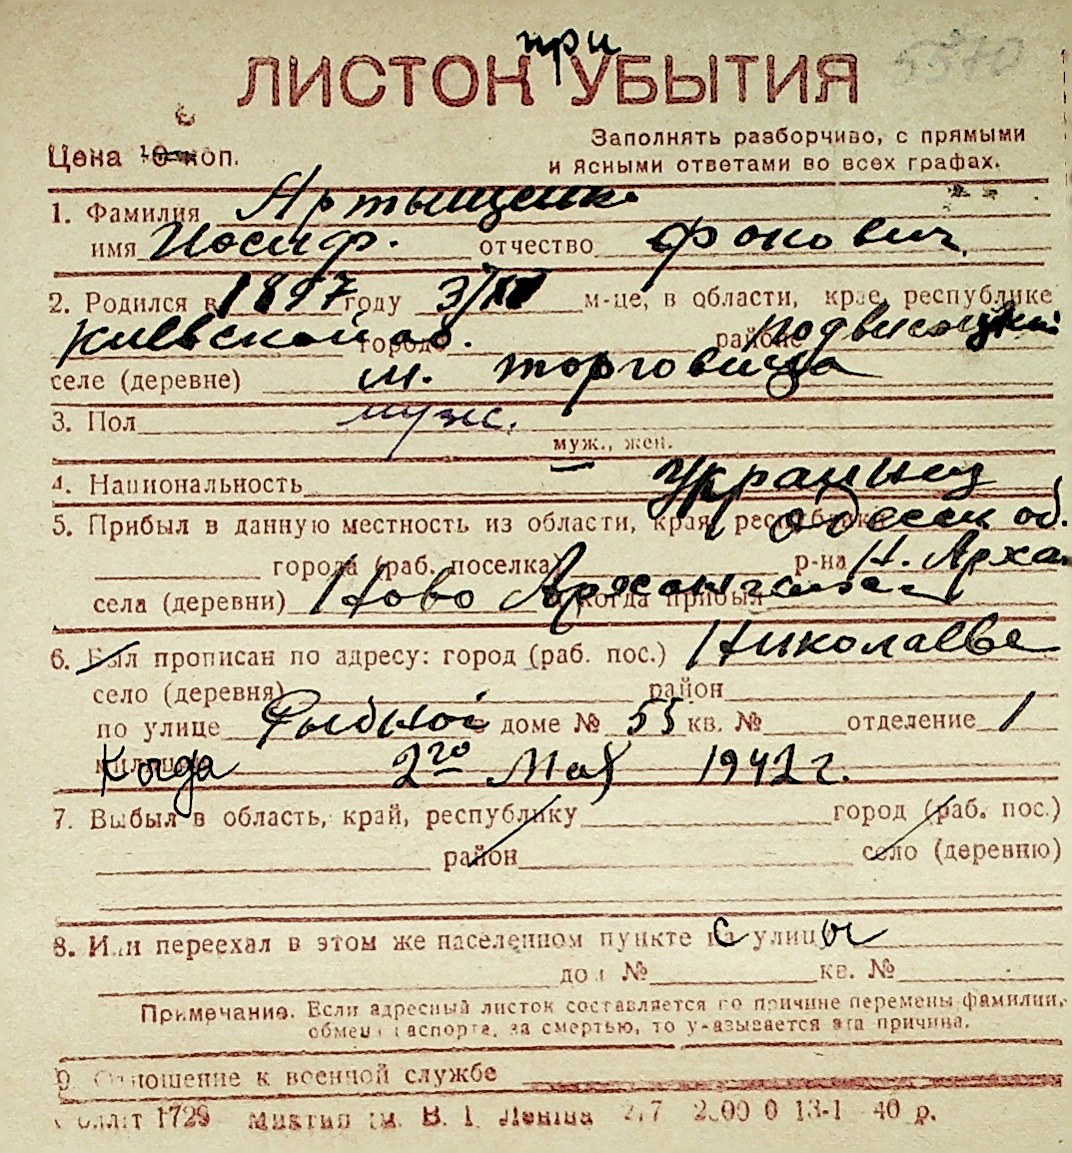 при
ЛИСТОК УБЫТИЯ
5570
Цена 10 коп.
Заполнять разборчиво, с прямыми
и ясными ответами во всех графах.
1. Фамилия Артыщенко
имя Иосиф. отчество Фокович
2. Родился в 1897 году 3/IV м-це, в области, крае, республике
Киевской об. городе районе Подвисоцкий
селе (деревне) м. Торговица
3. Пол муж.
муж., жен.
4. Национальность Украинец
5. Прибыл в данную местность из области, края, республики Одесск об.
города (раб. поселка) р-на Н. Арха
села (деревни) Ново Архангельск и когда прибыл
6. Был прописан по адресу: город (раб. пос.) Николаеве
село (деревня) район
по улице Рыбной доме № 55 кв. № отделение 1
милиции Когда 2го Мая 1942 г.
7. Выбыл в область, край, республику город (раб. пос.)
район село (деревню)
8. Или переехал в этом же населенном пункте с улицы
дом № кв. №
Примечание. Если адресный листок составляется по причине перемены фамилии,
обмена паспорта, за смертью, то указывается эта причина.
9. Отношение к военной службе
1729 им. В. І. Леніна 40 р.